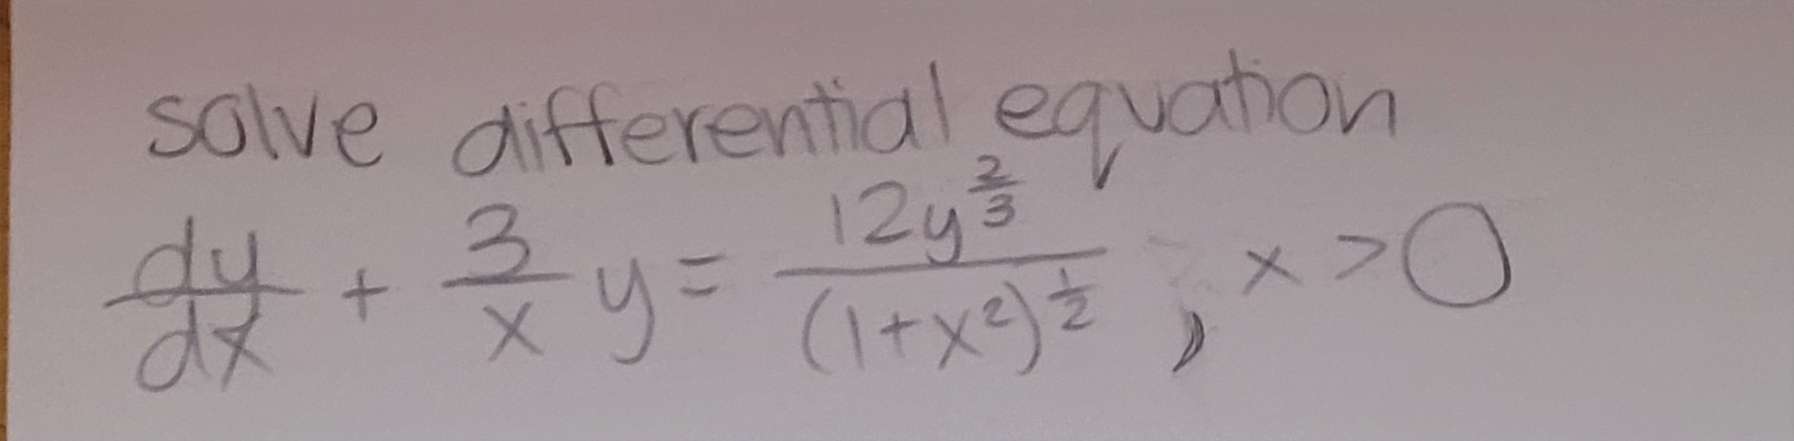 solve differential equation
dy/dx + 3/x y = 12y^(2/3)/(1+x²)^(1/2) , x > 0